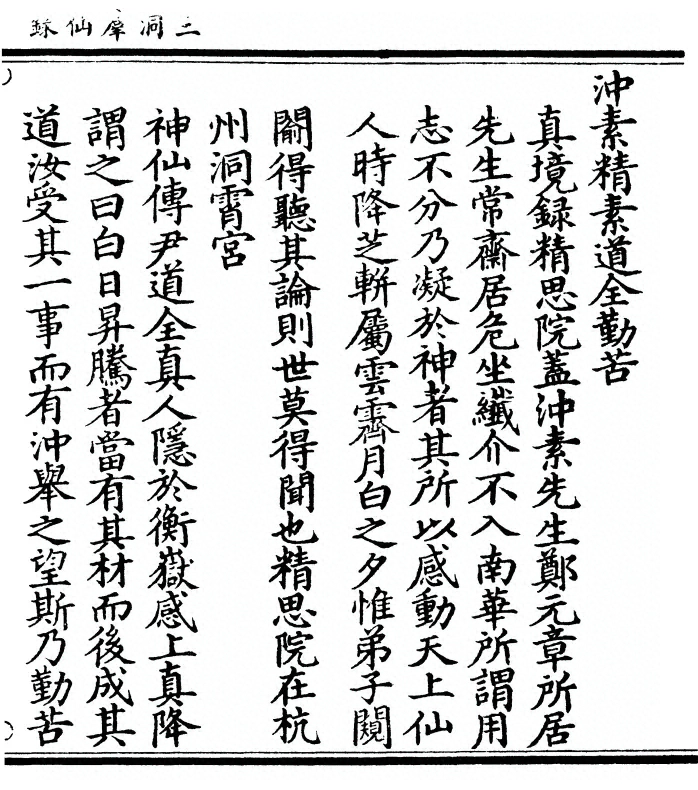 三洞羣仙錄
沖素精素道全勤苦
真境録精思院蓋沖素先生鄭元章所居
先生常齋居危坐纖介不入南華所謂用
志不分乃凝於神者其所以感動天上仙
人時降芝輧屬雲霽月白之夕惟弟子闚
闟得聽其論則世莫得聞也精思院在杭
州洞霄宮
神仙傳尹道全真人隱於衡嶽感上真降
謂之曰白日昇騰者當有其材而後成其
道汝受其一事而有沖舉之望斯乃勤苦